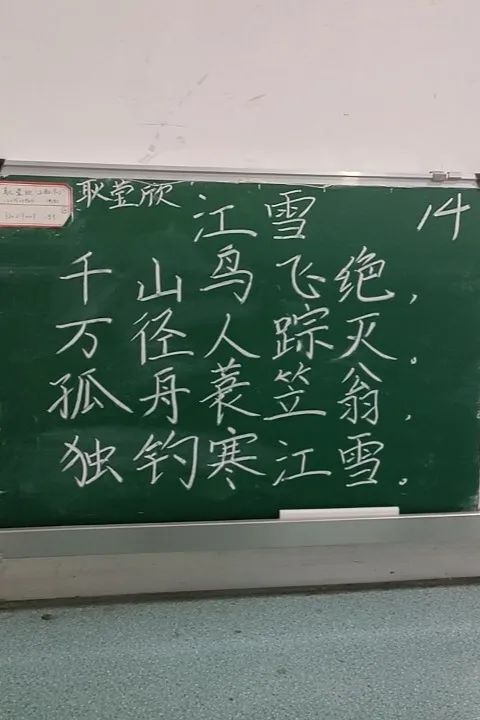 耿莹欣
江雪
14
千山鸟飞绝,
万径人踪灭。
孤舟蓑笠翁,
独钓寒江雪。